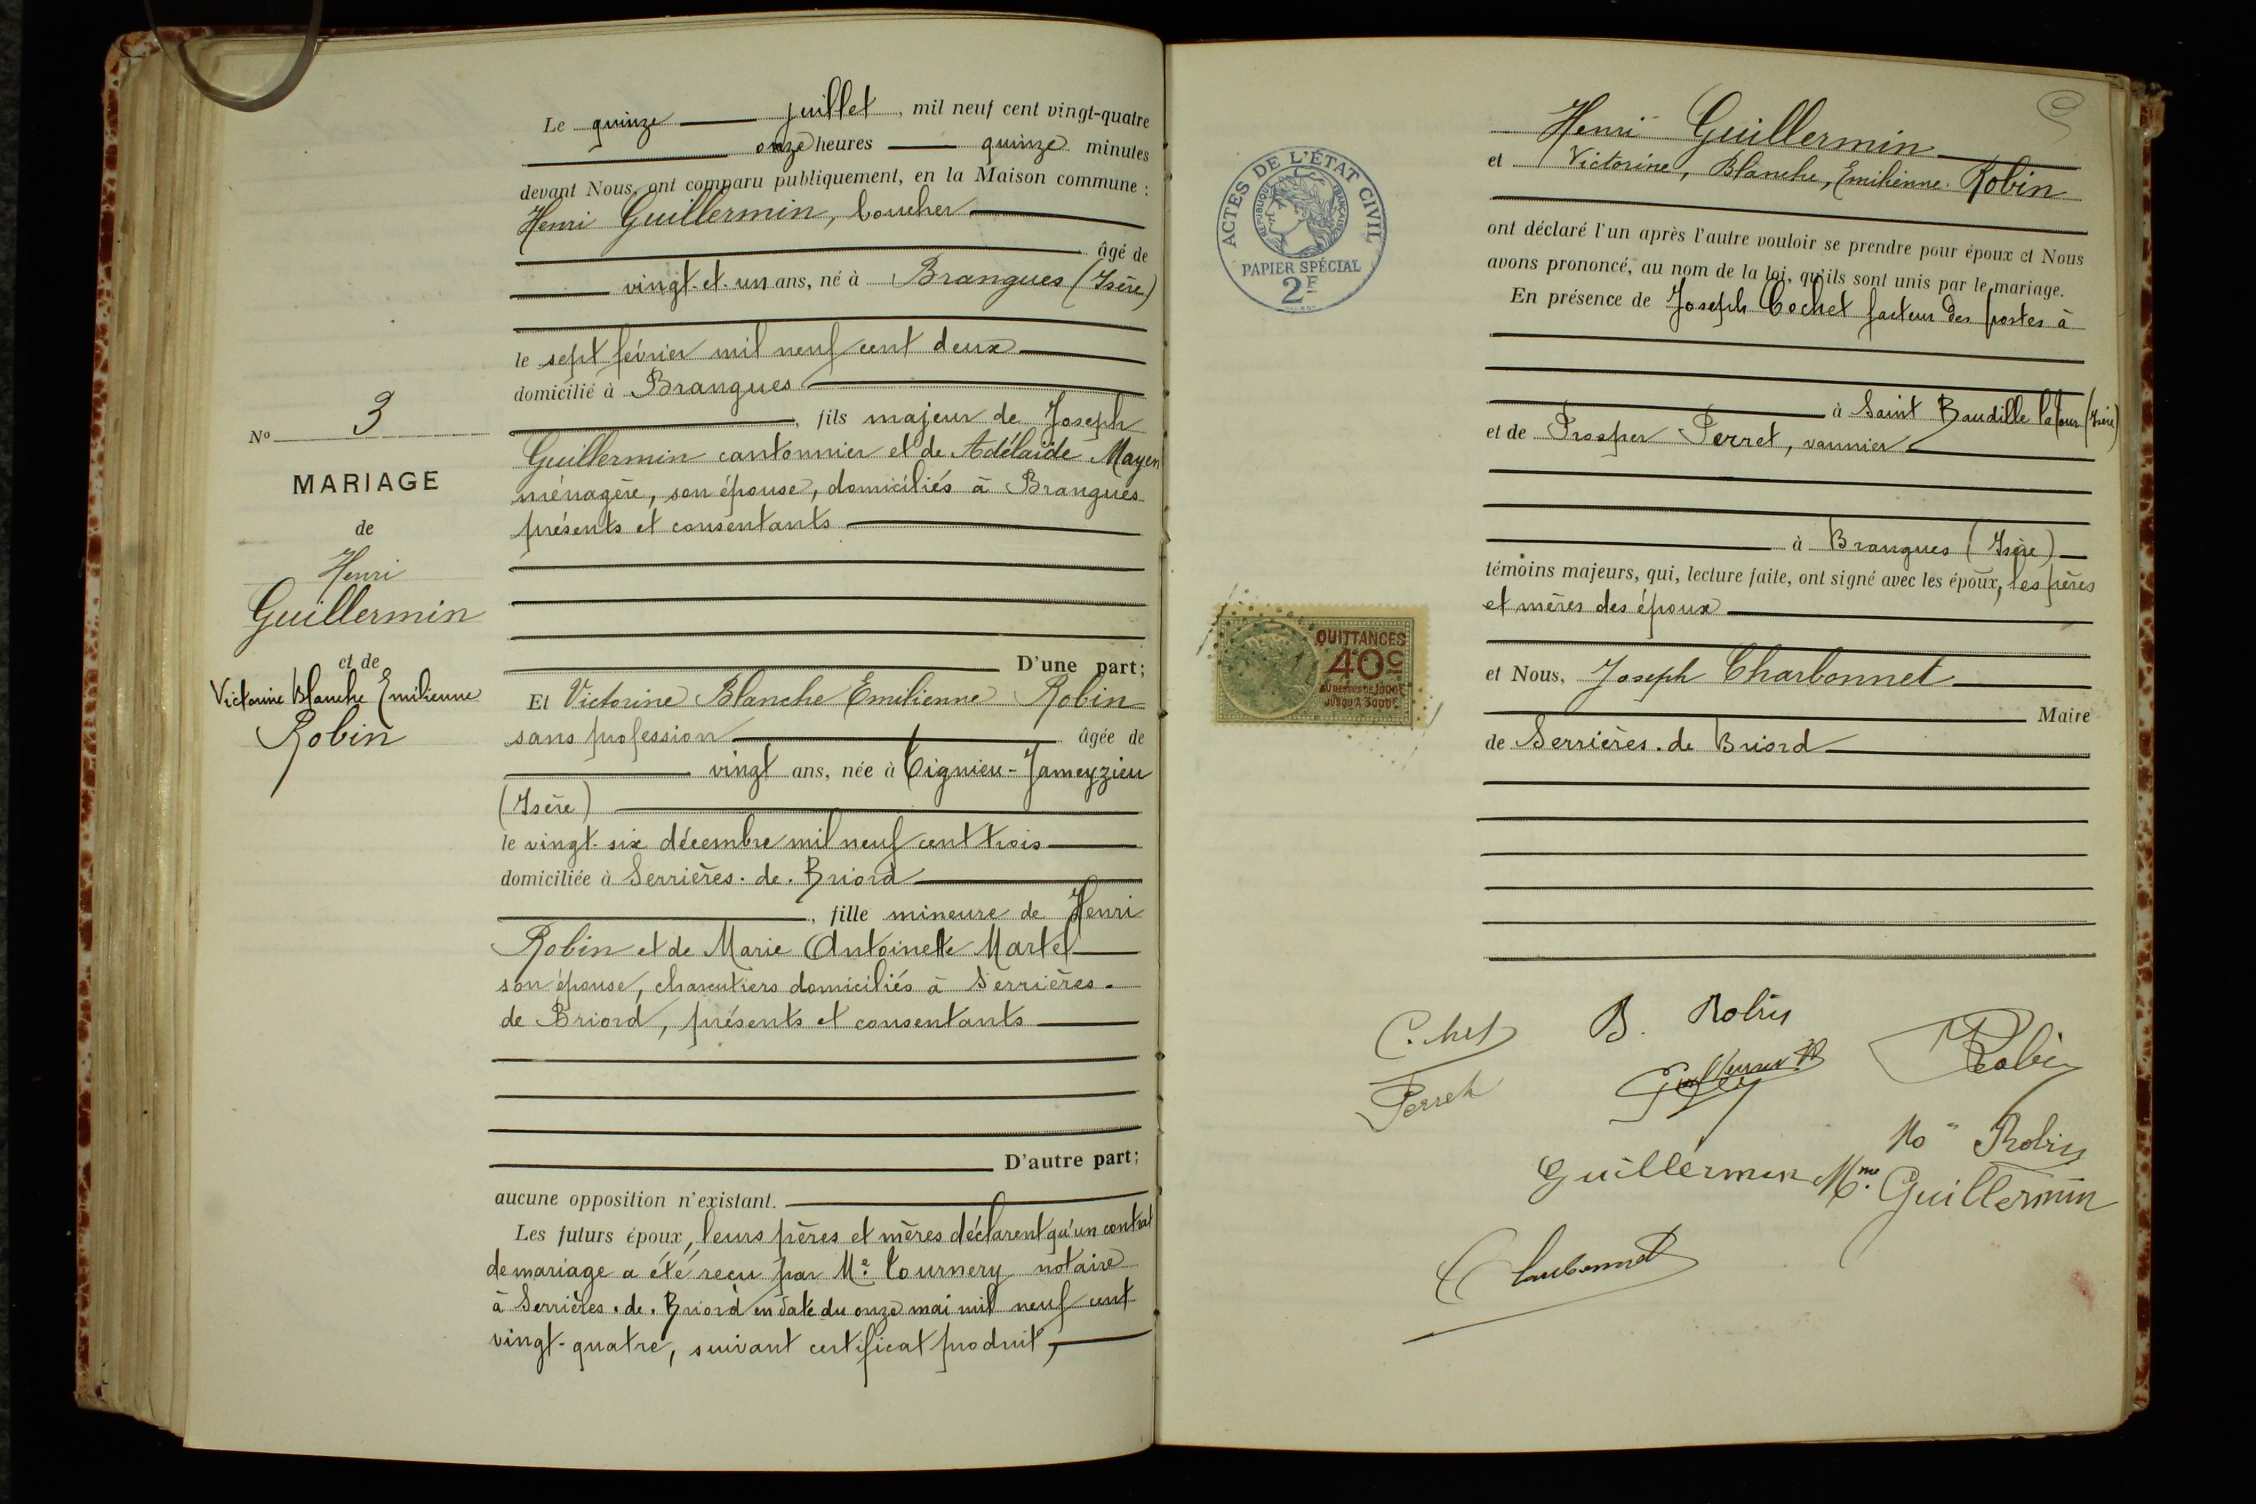 Le quinze juillet, mil neuf cent vingt-quatre
onze heures quinze minutes
devant Nous, ont comparu publiquement, en la Maison commune :
Henri Guillermin, boucher
âgé de
vingt-et-un ans, né à Brangues (Isère)
le sept février mil neuf cent deux
domicilié à Brangues
, fils majeur de Joseph
Guillermin cantonnier et de Adélaïde Mayen
ménagère, son épouse, domiciliés à Brangues
présents et consentants
D'une part;
Et Victorine Blanche Emilienne Robin
sans profession âgée de
vingt ans, née à Tignieu-Jameyzieu
(Isère)
le vingt-six décembre mil neuf cent trois
domiciliée à Serrières.de.Briord
, fille mineure de Henri
Robin et de Marie Antoinette Martel
son épouse, charcutiers domiciliés à Serrières.
de Briord, présents et consentants
D'autre part;
aucune opposition n'existant.
Les futurs époux, leurs pères et mères déclarent qu'un contrat
de mariage a été reçu par Me Tournery notaire
à Serrières.de.Briord en date du onze mai mil neuf cent
vingt-quatre, suivant certificat produit,
No 3
MARIAGE
de
Henri
Guillermin
et de
Victorine Blanche Emilienne
Robin
Henri Guillermin
et Victorine, Blanche, Emilienne Robin
ont déclaré l'un après l'autre vouloir se prendre pour époux et Nous
avons prononcé, au nom de la loi, qu'ils sont unis par le mariage.
En présence de Joseph Cochet facteur des postes à
à Saint Baudille la Tour (Isère)
et de Prosper Perret, vannier
à Brangues (Isère)
témoins majeurs, qui, lecture faite, ont signé avec les époux, les pères
et mères des époux
et Nous, Joseph Charbonnet
Maire
de Serrières.de Briord
ACTES DE L'ÉTAT CIVIL
RÉPUBLIQUE FRANÇAISE
PAPIER SPÉCIAL
2F
QUITTANCES
40c
AU DESSUS DE 1000F
JUSQU'À 3000F
Cochet
B. Robin
Robin
Perret
Guillermin H
Robin
Guillermin
Mme Guillermin
Charbonnet